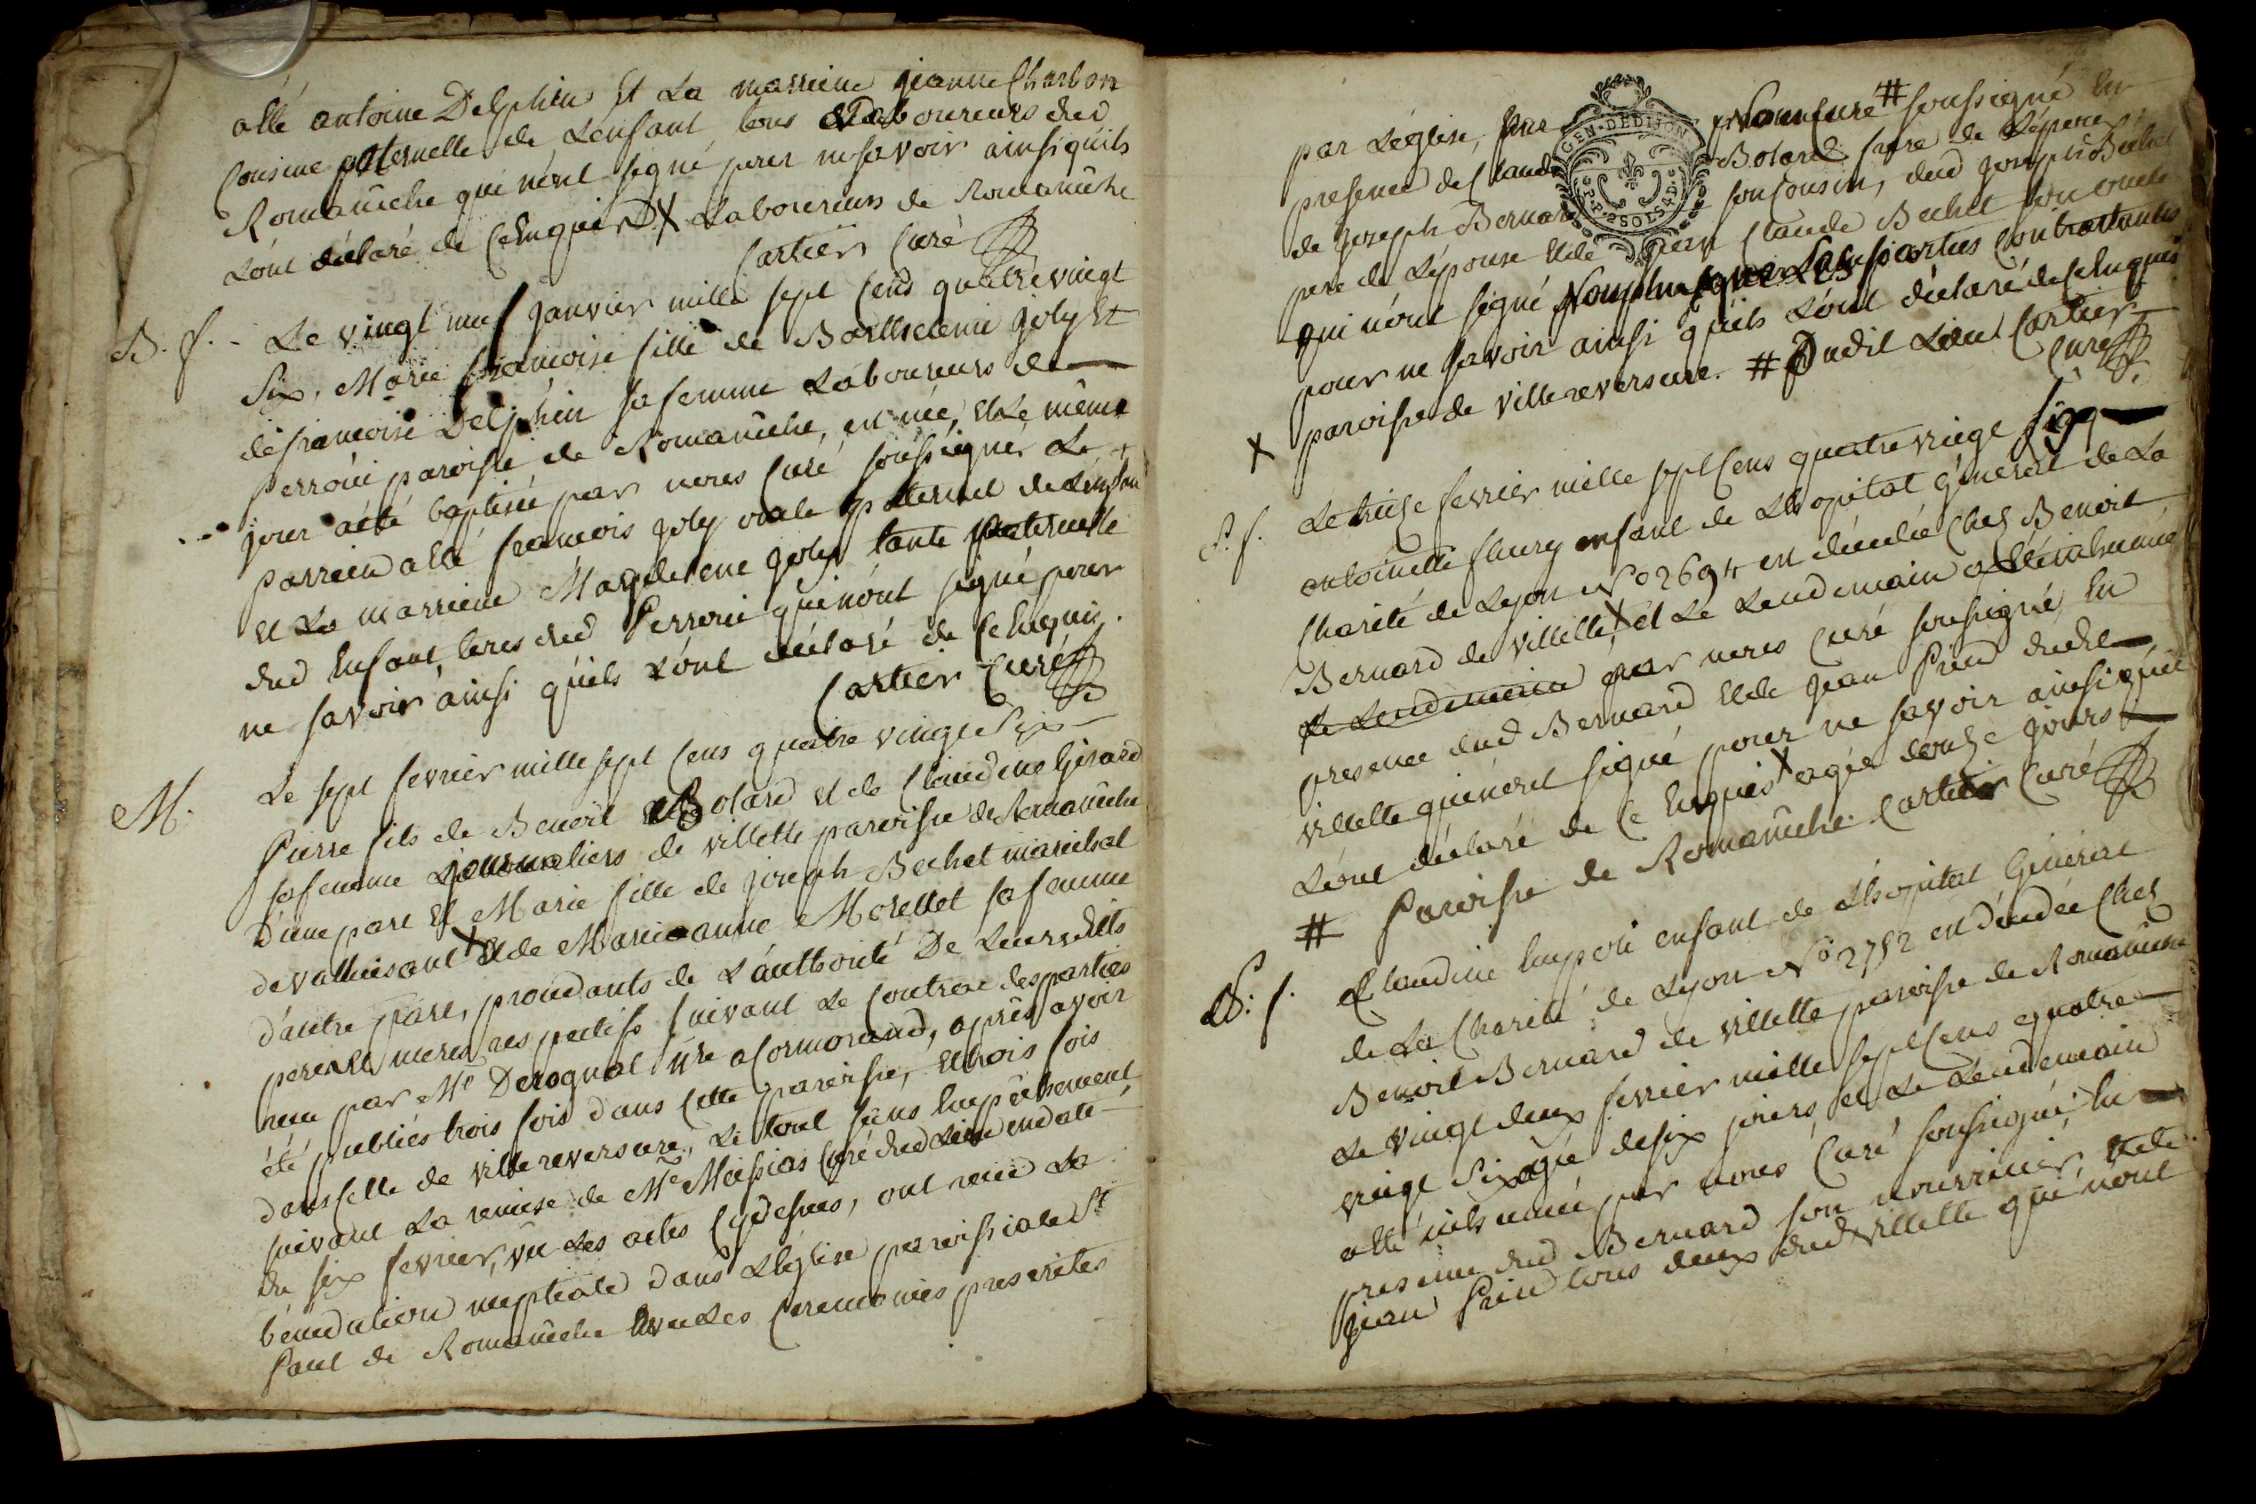 allé antoine Delphin Et La marreine jeanne Charbon
Cousine paternelle de Lenfant tous Laboureurs dud
Romaneche qui nont signé pour ne savoir ainsi quils
Lont déclaré de Ce Enquis X Laboureurs de Romaneche
Cartier Curé
B. f. Le vingt neuf janvier mille sept Cens quatre vingt
Six, Marie francoise fille de Barthelemi joly Et
de francoise Delphin sa femme Laboureurs de
Perroüi paroisse de Romaneche, est née, Et Le même
jour a été baptisée par nous Curé soussigner Le
Parrein a été francois joly oncle paternel de Lenfant
et La marreine Magdeleine joly tante paternelle
dud Enfant, tous dud Perroüi qui nont signé pour
ne savoir ainsi quils Lont déclaré de Ce Enquis.
Cartier Curé
M. Le sept fevrier mille sept Cens quatre vingt Six
Pierre fils de Benoit Bolard et de Claudine Girard
sa femme journaliers de villette paroisse de Romaneche
D'une part Et Marie fille de joseph Bechet marechal
de X Et de Marie anne Morellet sa femme
d'autre part, procedants de L'authorité De Leurs dits
peres Et meres respectifs suivant Le Contrat des parties
reçu par Me Derognat Nre a Cormorand, après avoir
été publiés trois fois dans Cette paroisse, Et trois fois
dans Celle de villereversure, Le tout sans Empéchement,
suivant La remise de Mre Messias Curé dud Lieu en date
du six fevrier, vu Les actes Cydessus, ont recu La
bénédiction nuptiale dans L'église paroissiale St
Paul de Romaneche avec Les Ceremonies prescrites
par L'église, par Nous Curé # soussigné En
presence de Claude Bolard frere de L'epoux,
de joseph Bernard son Cousin, dud joseph Bechet
pere de L'épouse Et de jean Claude Bechet son oncle
qui nont signé Non plus que Les parties Contractantes
pour ne savoir ainsi quils Lont déclaré de Ce Enquis
X paroisse de villereversure. # Dudit Lieu Cartier
Curé
GEN. DE DIJON
P.P. 2 SOLS 4 D.
S. f. Le treize fevrier mille sept Cens quatre vingt six
antoinette fleury enfant de L'hopital géneral de La
Charité de Lyon No 2694 est décedée Chez Benoit
Bernard de villette, X et Le Lendemain a été inhumée
Le Lendemain par nous Curé soussigné, En
presence dud Bernard Et de jean Prin dudit
villette qui nont signé pour ne savoir ainsi quils
Lont déclaré de Ce Enquis X agée d'onze jours
# Paroisse de Romaneche. Cartier Curé
S. f. Claudine enfant de L'hopital Géneral
de La Charité de Lyon No 2752 est décedée Chez
Benoit Bernard de villette paroisse de Romaneche
Le vingt deux fevrier mille sept Cens quatre
vingt Six agée de six jours, et Le Lendemain
a été inhumée par nous Curé soussigné, En
presence dud Bernard son nourricier, Et de
jean Prin tous deux dud villette qui nont